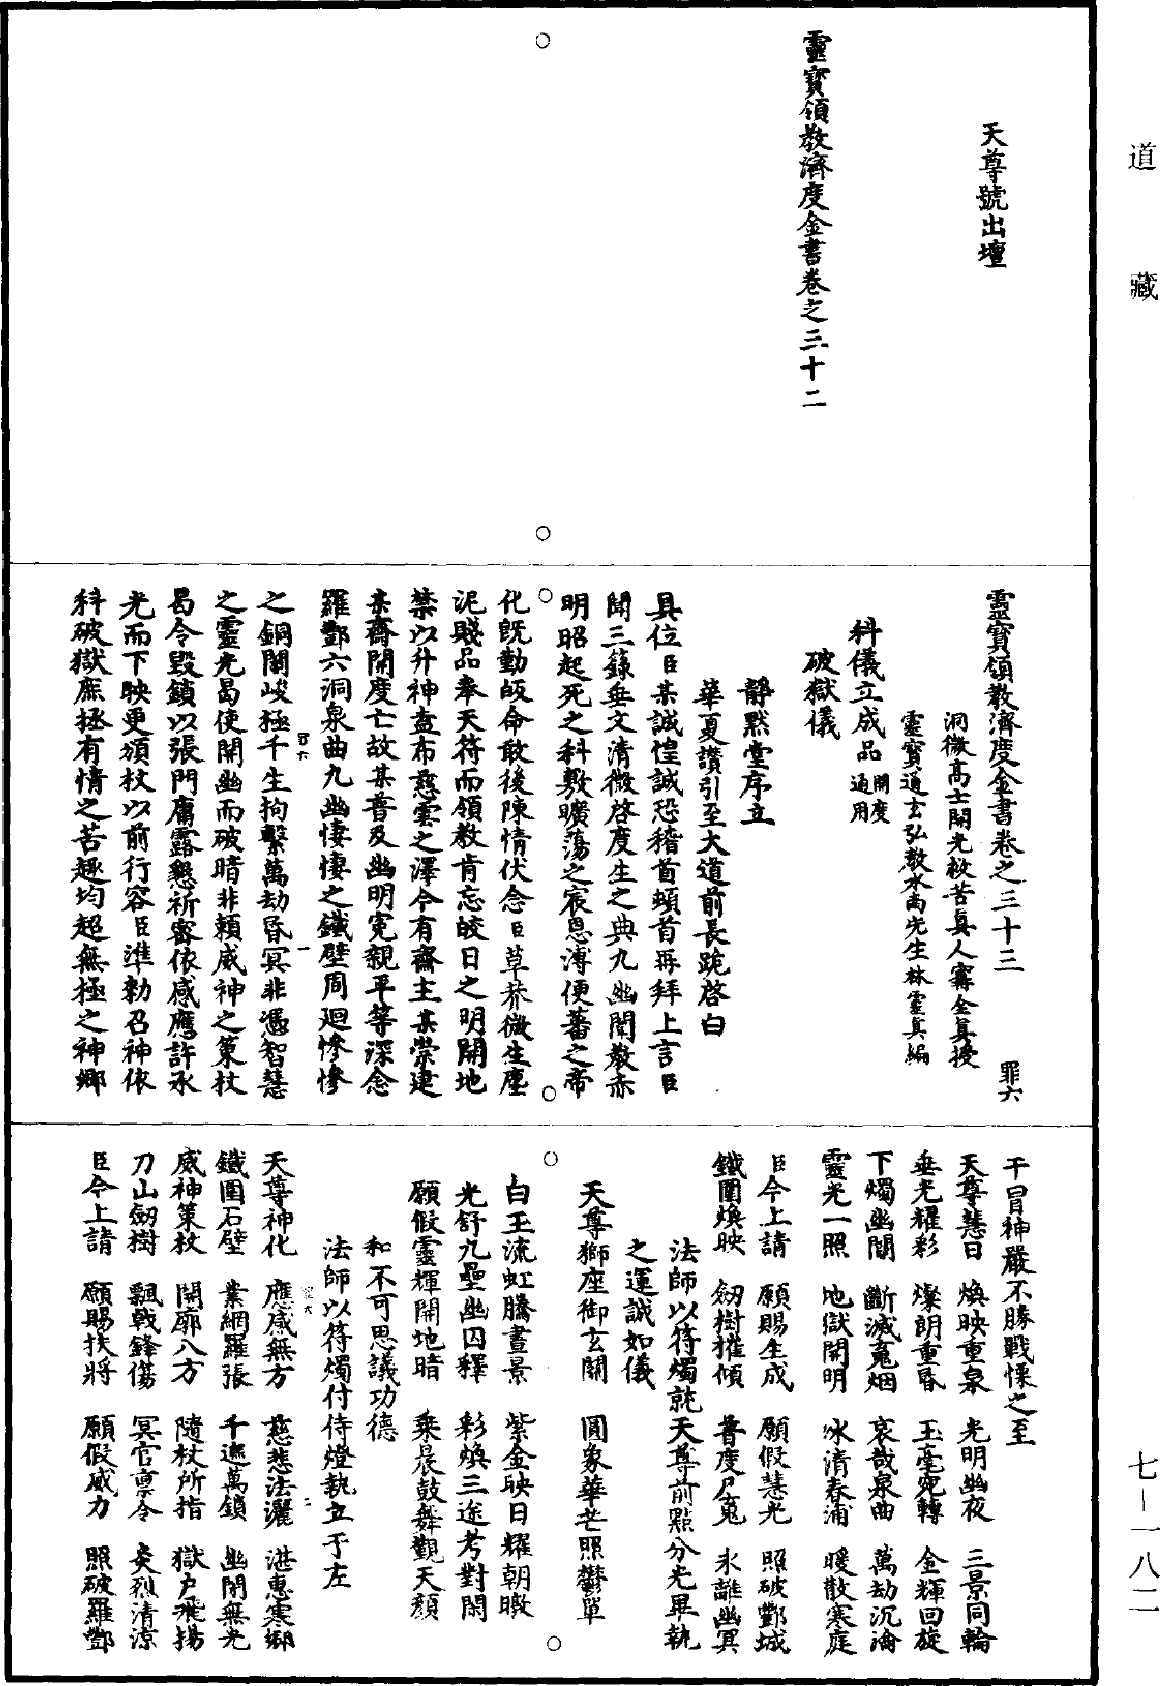 道藏
天尊號出壇
靈寶領教濟度金書卷之三十二
靈寶領教濟度金書卷之三十三 罪六
洞微高士開光救苦真人甯全真授
靈寶通玄弘教水南先生林靈真編
科儀立成品 開度通用
破獄儀
靜默堂序立
華夏讚引至大道前長跪啓白
具位臣某誠惶誠恐稽首頓首再拜上言臣
聞三籙垂文清微啓度生之典九幽闡教赤
明昭起死之科敷曠蕩之宸恩溥便蕃之帝
化旣勤皈命敢後陳情伏念臣草莽微生塵
泥賤品奉天符而領教肯忘皎日之明開地
禁以升神盍布慈雲之澤今有齋主某崇建
某齋開度亡故某普及幽明寃親平等深念
羅酆六洞泉曲九幽悽悽之鐵壁周廻慘慘
之銅關峻極千生拘繫萬劫昏冥非憑智慧
之靈光曷使開幽而破暗非賴威神之策杖
曷令毀鎖以張門庸露懇祈密依感應許承
光而下映更頒杖以前行容臣準勑召神依
科破獄庶拯有情之苦趣均超無極之神鄉
干冒神嚴不勝戰慄之至
天尊慧日 煥映重泉 光明幽夜 三景同輪
垂光耀彩 燦朗重昏 玉毫宛轉 金輝回旋
下燭幽關 斷滅寃烟 哀哉泉曲 萬劫沉淪
靈光一照 地獄開明 冰清春浦 暖散寒庭
臣今上請 願賜生成 願假慧光 照破酆城
鐵圍煥映 劒樹摧傾 普度尸䰟 永離幽冥
法師以符燭就天尊前點分光畢執
之運誠如儀
天尊獅座御玄關 圓象華芒照鬱單
白玉流虹騰晝景 紫金映日耀朝暾
光舒九壘幽囚釋 彩煥三途考對閑
願假靈輝開地暗 乘晨鼓舞覲天顏
和 不可思議功德
法師以符燭付侍燈執立于左
天尊神化 應感無方 慈悲法灑 湛惠寒鄉
鐵圍石壁 業網羅張 千遮萬鎖 幽閉無光
威神策杖 開廓八方 隨杖所指 獄戶飛揚
刀山劒樹 飄戟鋒傷 冥官禀令 炎烈清涼
臣今上請 願賜扶將 願假威力 照破羅酆
七一一八二